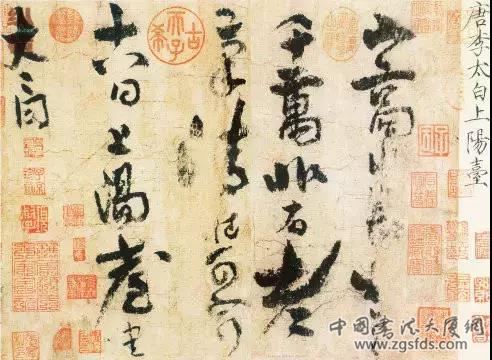 唐李太白上陽臺
山高水長物象
千萬非有老
筆清壯可窮
十八日上陽臺書
太白
古希天子
中國書法大厦網
www.zgsfds.com